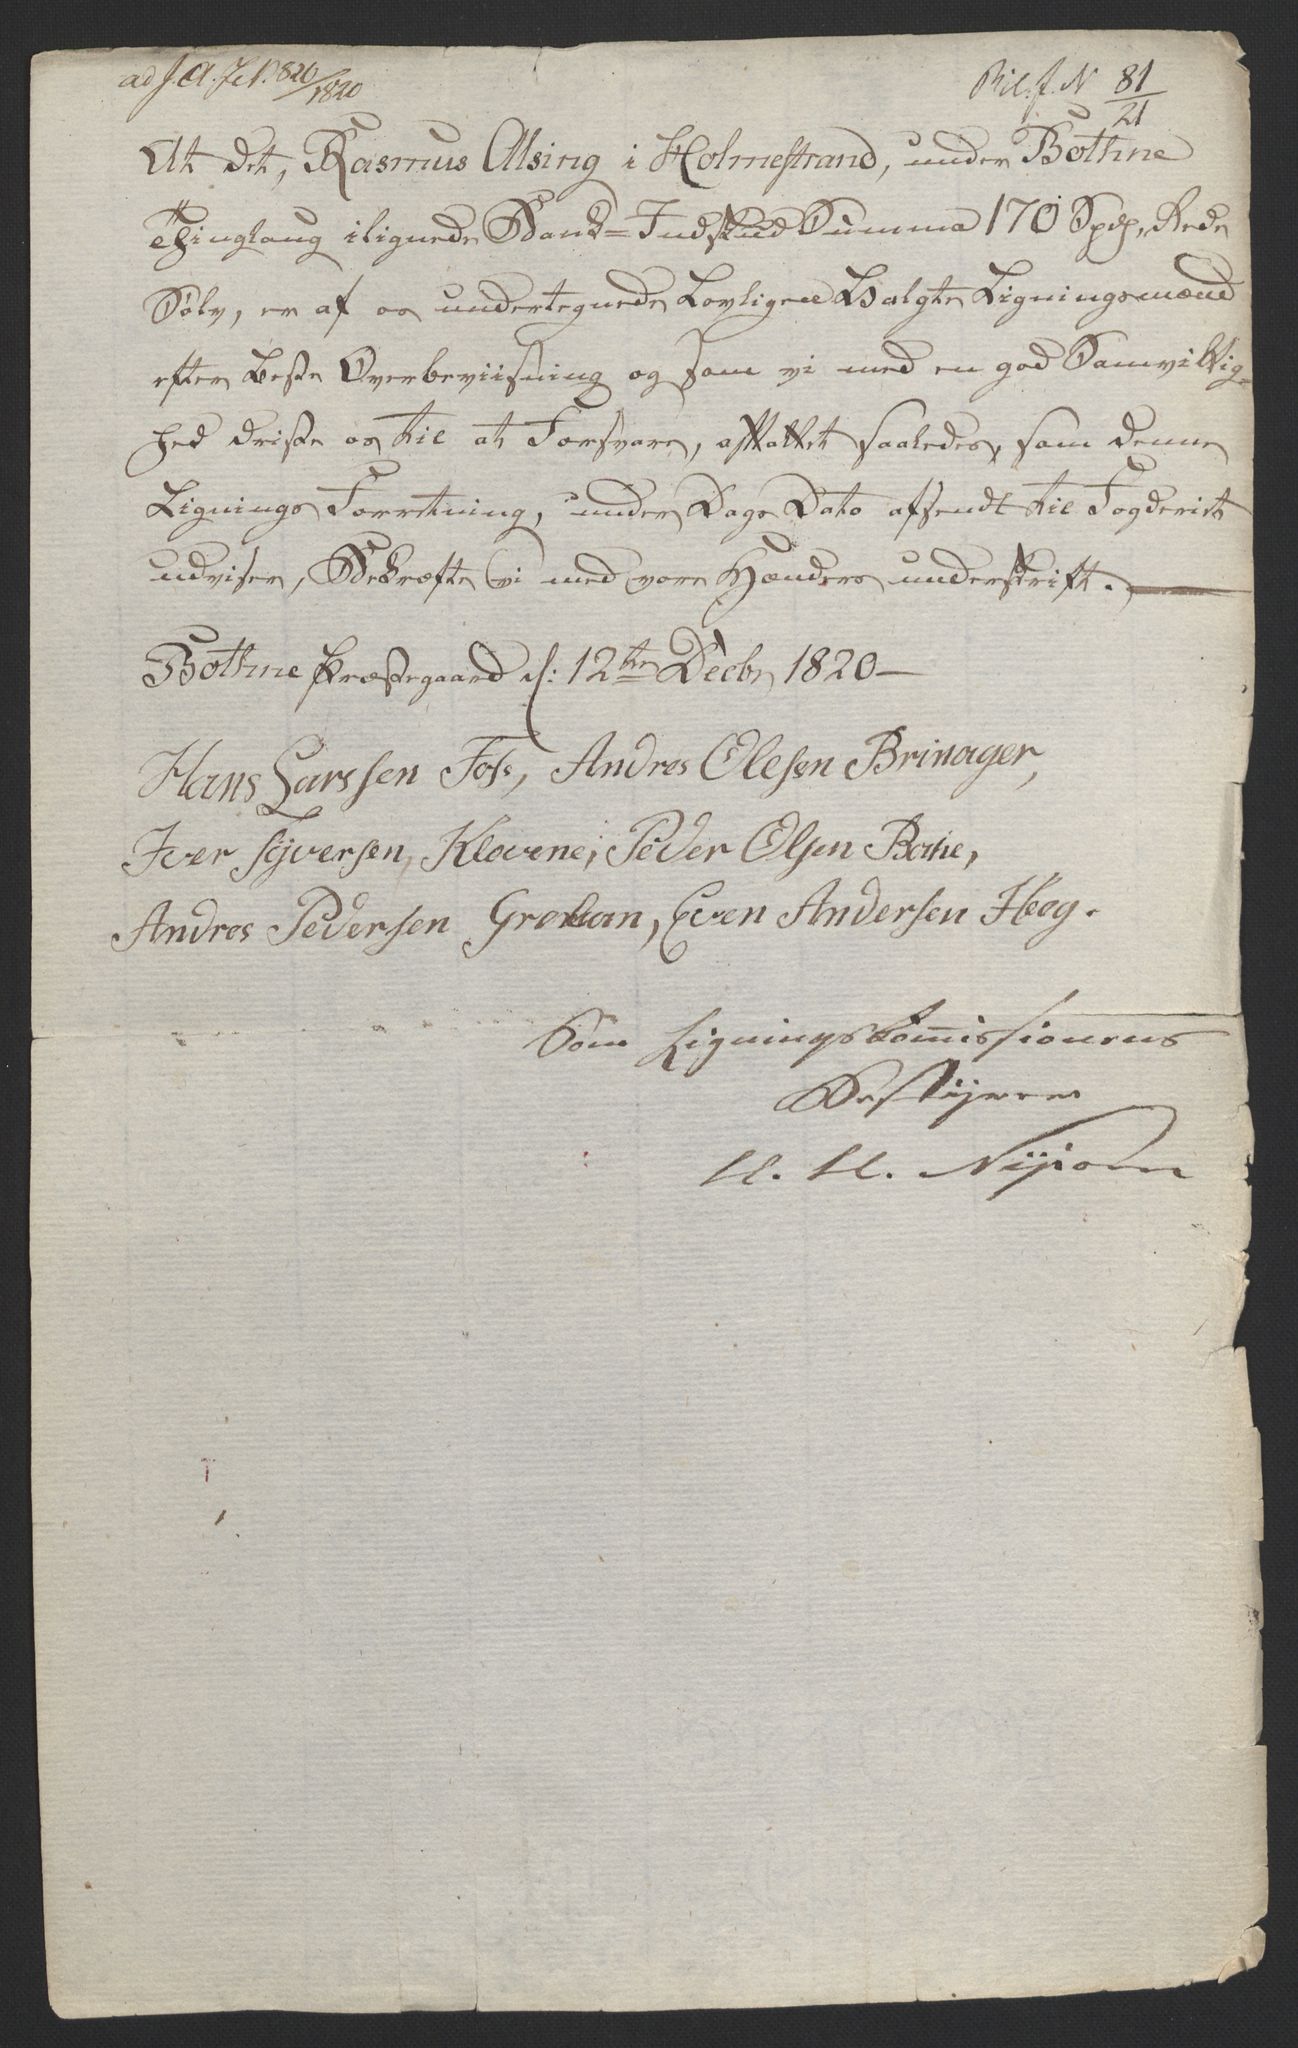 ad J. A. Je No. 820/1820
Bil. f. N 81/21
At det, Rasmus Alsing i Holmestrand, under Bothne
Thinglaug ilignede Bank=Indskud Summa 170 Spd, Rede
Sölv, er af os undertegnede Lovligen Valgte Ligningsmænd
efter beste Overbeviisning og som vi med en god Samvittig-
hed driste os til at Forsvare, affattet saaledes, som denne
Lignings Forretning, under Dags Dato afsendt til Fogderiet
udviser, Bekræfte vi med vore Hænders underskrift.
Bothne Præstegaard d: 12te Decbr 1820
Hans Larssen Foss, Andres Olesen Brinager,
Iver Syversen, Klovene, Peder Olsen Bothne,
Andres Pedersen Grøttan, Even Andersen Heeg.
Som Ligningskommissionens
Bestyrer
H. H. Nysom